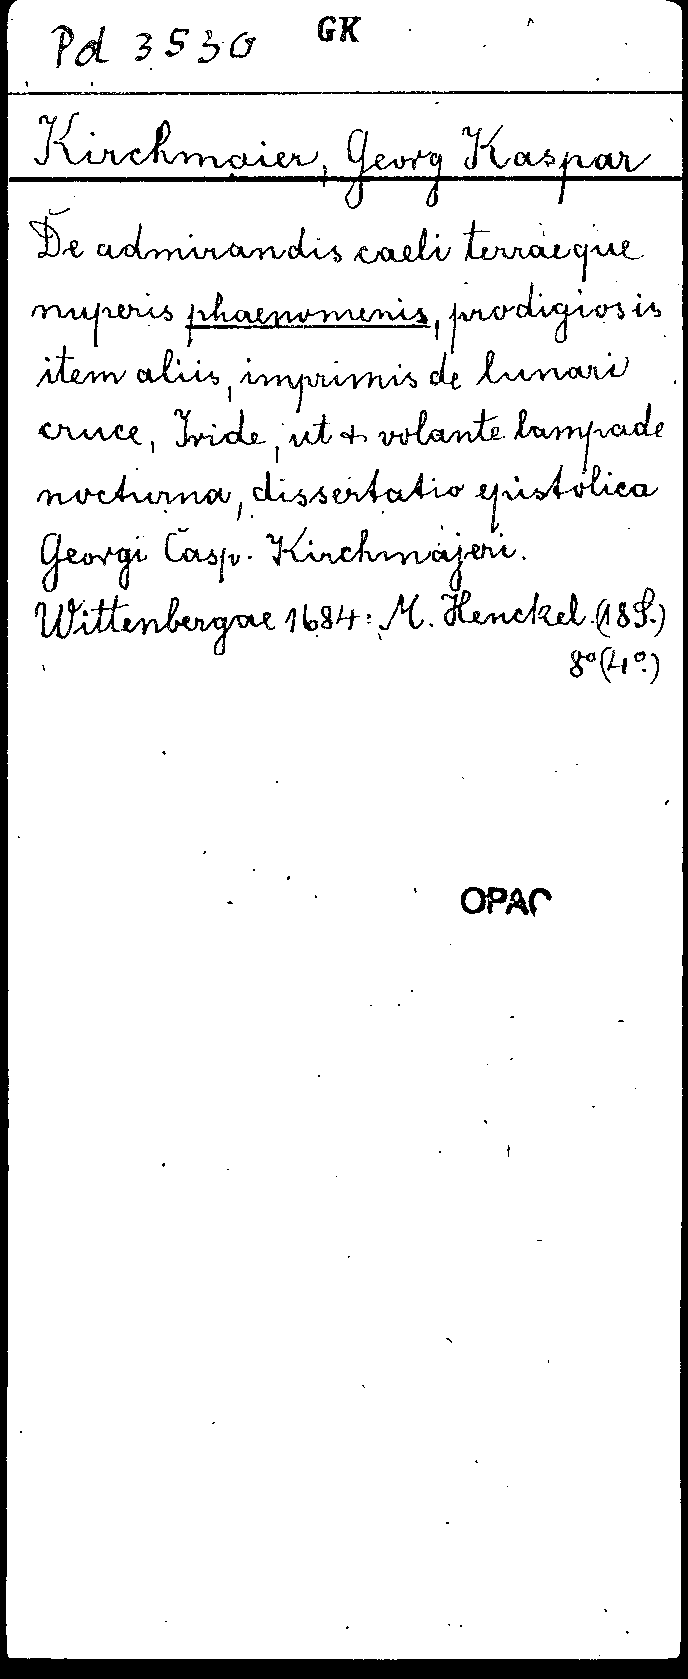 Pd 3530 GK
Kirchmaier, Georg Kaspar
De admirandis caeli terraeque
nuperis phaenomenis, prodigiosis
item aliis, imprimis de lunari
cruce, Iride, ut & volante lampade
nocturna, dissertatio epistolica
Georgi Casp. Kirchmajeri.
Wittenbergae 1684: M. Henckel. (18 S.)
8° (4°.)
OPAC